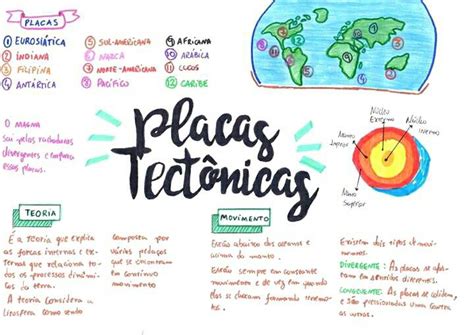 PLACAS
① EUROSIÁTICA
② INDIANA
③ FILIPINA
④ ANTÁRTICA
⑤ SUL-AMERICANA
⑥ NAZCA
⑦ NORTE-AMERICANA
⑧ PACÍFICO
⑨ AFRICANA
⑩ ARÁBICA
⑪ COCOS
⑫ CARIBE
O MAGMA
sai pelas
divergentes e
essas placas.
Placas
Tectônicas
Núcleo
Externo
Núcleo
Interno
Manto
Manto
Superior
TEORIA
É a teoria que explica
as forças internas e ex-
ternas que relaciona to-
dos os processos dinâmi-
cos da terra.
A teoria considera a
litosfera como sendo
composta por
vários pedaços
que se encontram
em contínuo
movimento
MOVIMENTO
Estão abaixo dos oceanos e
acima do manto.
Estão sempre em constante
movimento e de vez em quando
elas se chocam formando terremo-
tos.
Existem dois tipos de movi-
mentos.
DIVERGENTE: As placas se afas-
tam em sentidos diferentes.
CONVERGENTE: As placas se colidem,
e são pressionadas umas contra
as outras.